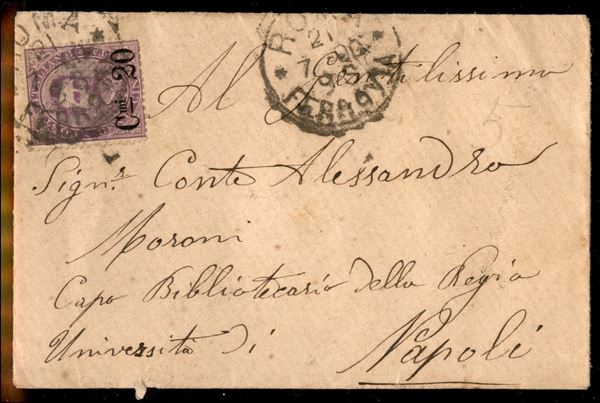 ROMA
21
Cmi 20
ROMA
21
7
FERROVIA
Al Gentilissimo
Sign.r Conte Alessandro
Moroni
Capo Bibliotecario della Regia
Università di
Napoli
5